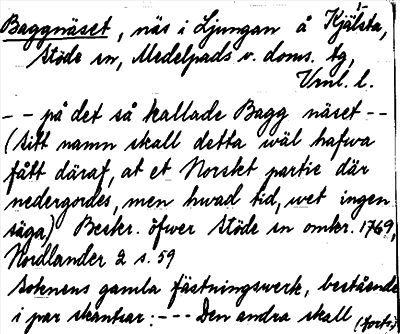 Baggnäset, näs i Ljungan å Kjälsta,
Stöde sn, Medelpads v. doms. tg,
Vrnl. l.
-- på det så kallade Bagg näset --
(sitt namn skall detta wäl hafwa
fått däraf, at et Norskt partie där
nedergordes, men hwad tid, wet ingen
säga) Beskr. öfwer Stöde sn omkr. 1769,
Nordlander 2 s. 59
Soknens gamla fästningswerk, bestående
i par skantsar: --- Den andra skall (forts.)